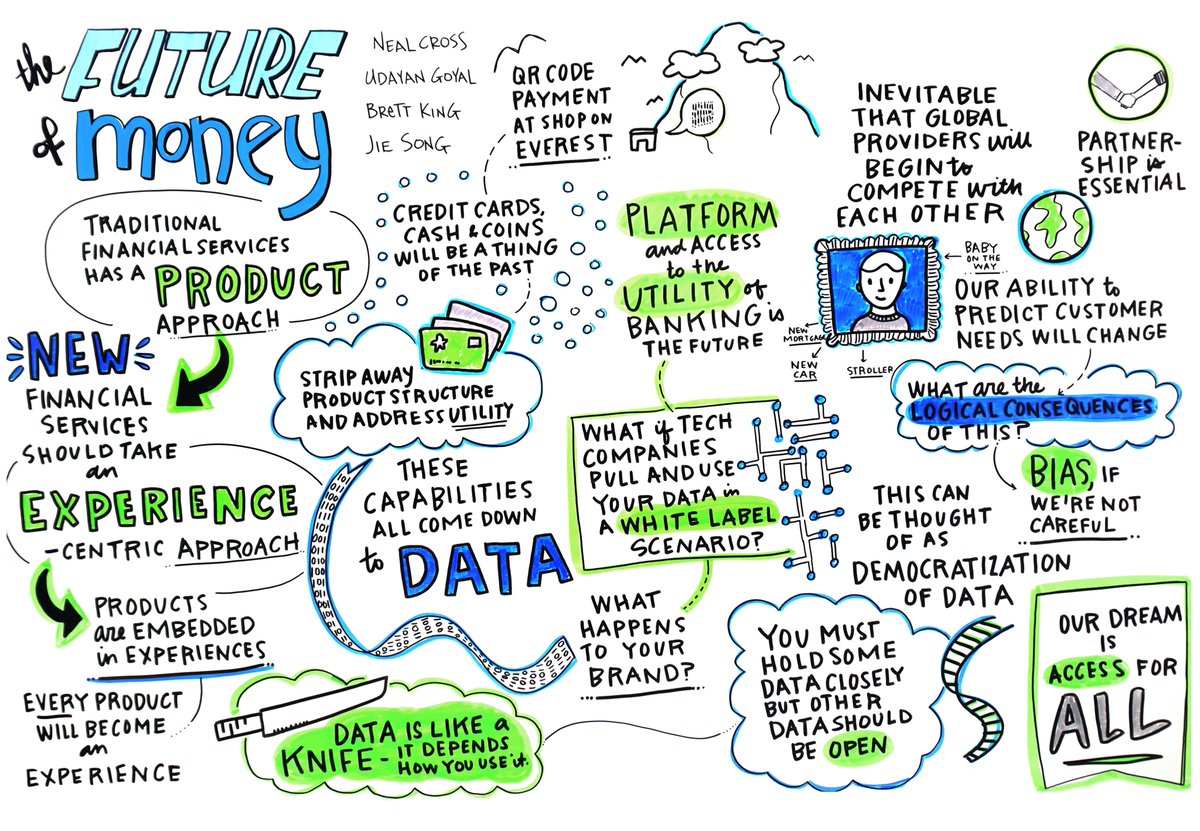 the FUTURE
of money
NEAL CROSS
UDAYAN GOYAL
BRETT KING
JIE SONG
TRADITIONAL
FINANCIAL SERVICES
HAS A PRODUCT
APPROACH
NEW
FINANCIAL
SERVICES
SHOULD TAKE
an
EXPERIENCE
-CENTRIC APPROACH
PRODUCTS
are EMBEDDED
in EXPERIENCES
EVERY PRODUCT
WILL BECOME
an
EXPERIENCE
QR CODE
PAYMENT
AT SHOP ON
EVEREST
CREDIT CARDS,
CASH & COINS
WILL BE A THING
OF THE PAST
STRIP AWAY
PRODUCT STRUCTURE
AND ADDRESS UTILITY
THESE
CAPABILITIES
ALL COME DOWN
to DATA
DATA IS LIKE a
KNIFE - IT DEPENDS
HOW YOU USE it.
PLATFORM
and ACCESS
to the
UTILITY of
BANKING is
THE FUTURE
WHAT if TECH
COMPANIES
PULL AND USE
YOUR DATA in
A WHITE LABEL
SCENARIO?
WHAT
HAPPENS
TO YOUR
BRAND?
INEVITABLE
THAT GLOBAL
PROVIDERS will
BEGIN to
COMPETE with
EACH OTHER
PARTNER-
SHIP is
ESSENTIAL
BABY
ON THE
WAY
NEW
MORTGAGE
NEW
CAR
STROLLER
OUR ABILITY to
PREDICT CUSTOMER
NEEDS WILL CHANGE
WHAT are the
LOGICAL CONSEQUENCES
OF THIS?
BIAS, IF
WE'RE NOT
CAREFUL
THIS CAN
BE THOUGHT
OF AS
DEMOCRATIZATION
OF DATA
YOU MUST
HOLD SOME
DATA CLOSELY
BUT OTHER
DATA SHOULD
BE OPEN
OUR DREAM
IS
ACCESS FOR
ALL